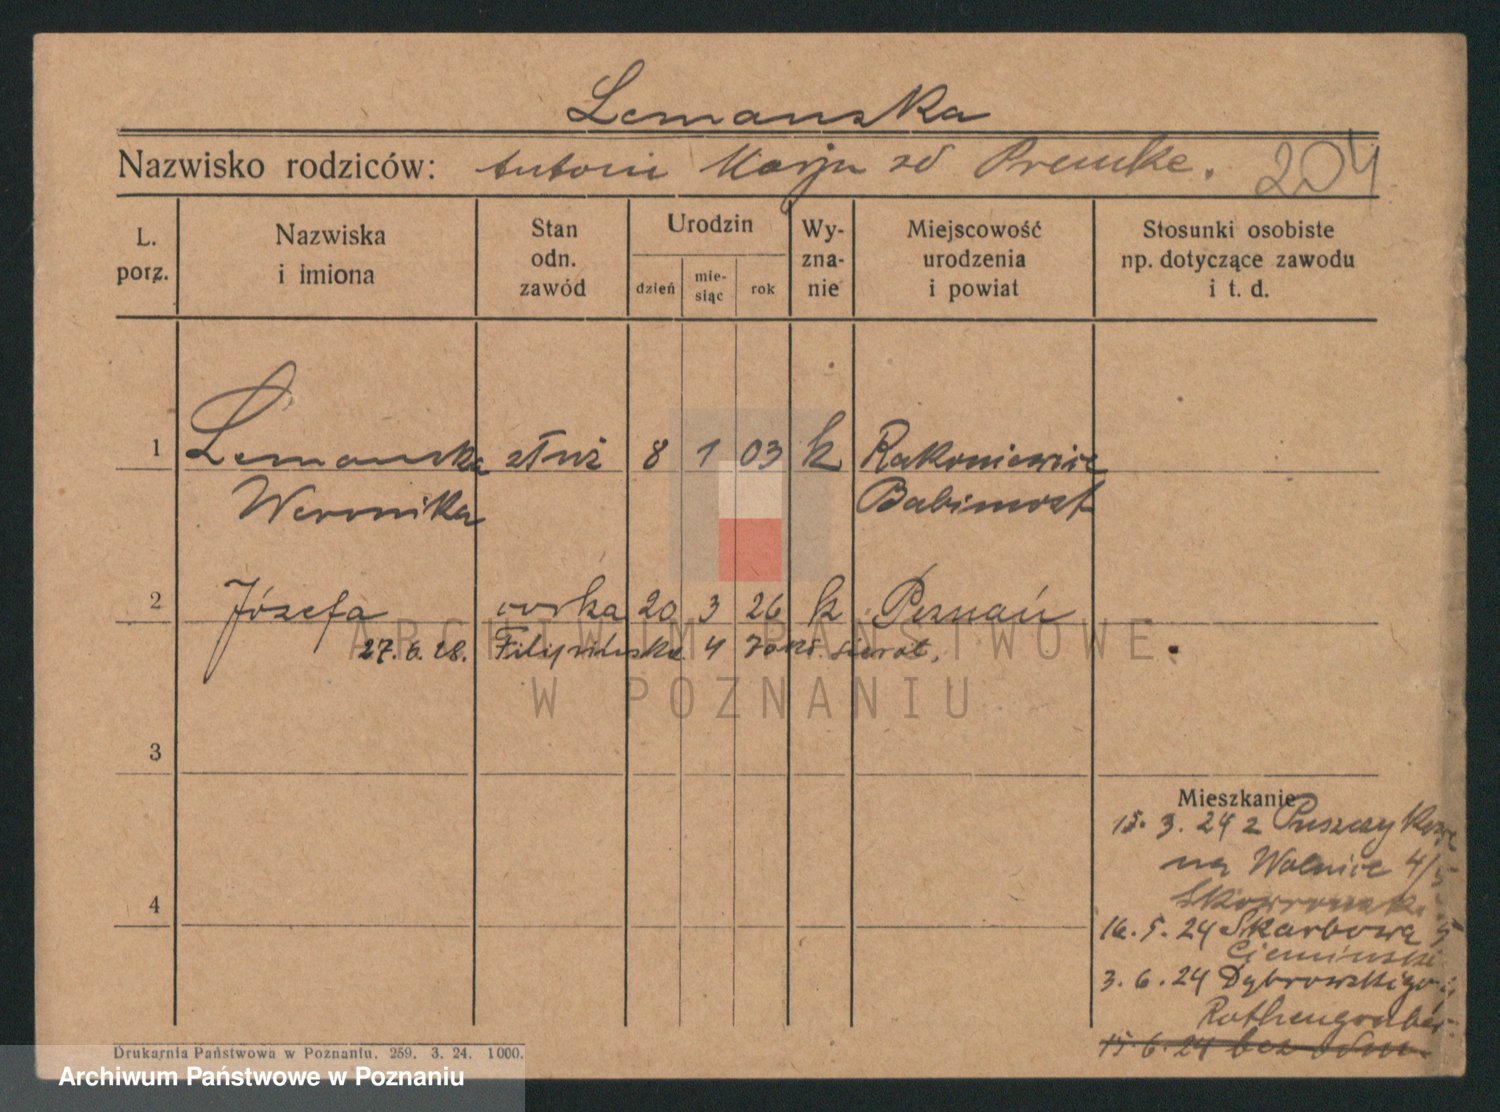 Lemanska
Nazwisko rodziców: Antoni Marja zd Premke. 204
L. porz. Nazwiska i imiona Stan odn. zawód Urodzin dzień mie-siąc rok Wy-zna-nie Miejscowość urodzenia i powiat Stosunki osobiste np. dotyczące zawodu i t. d.
1 Lemanska służ 8 1 03 k Rakoniewice
Weronika Babimost
2 Józefa córka 20 3 26 k Poznań
27. 6. 28. Filipińska 4 sierot.
ARCHIWUM PAŃSTWOWE
W POZNANIU
3
Mieszkanie
15. 3. 24 z Puszczykowa
na Wolnice 4/5
4
Skowronek
16. 5. 24 Skarbowa 5
Ciemiński
3. 6. 24 Dąbrowskiego
15. 6. 24 bez odm.
Drukarnia Państwowa w Poznaniu. 259. 3. 24. 1000.
Archiwum Państwowe w Poznaniu